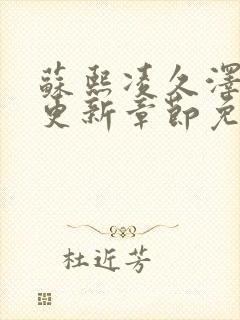 蘇熙凌久澤
更新章節免
杜近芳